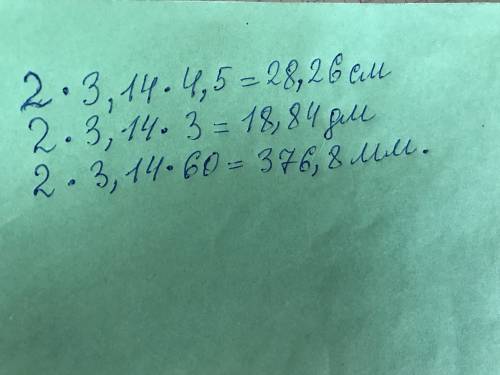 2 · 3,14 · 4,5 = 28,26 см
2 · 3,14 · 3 = 18,84 дм
2 · 3,14 · 60 = 376,8 мм.